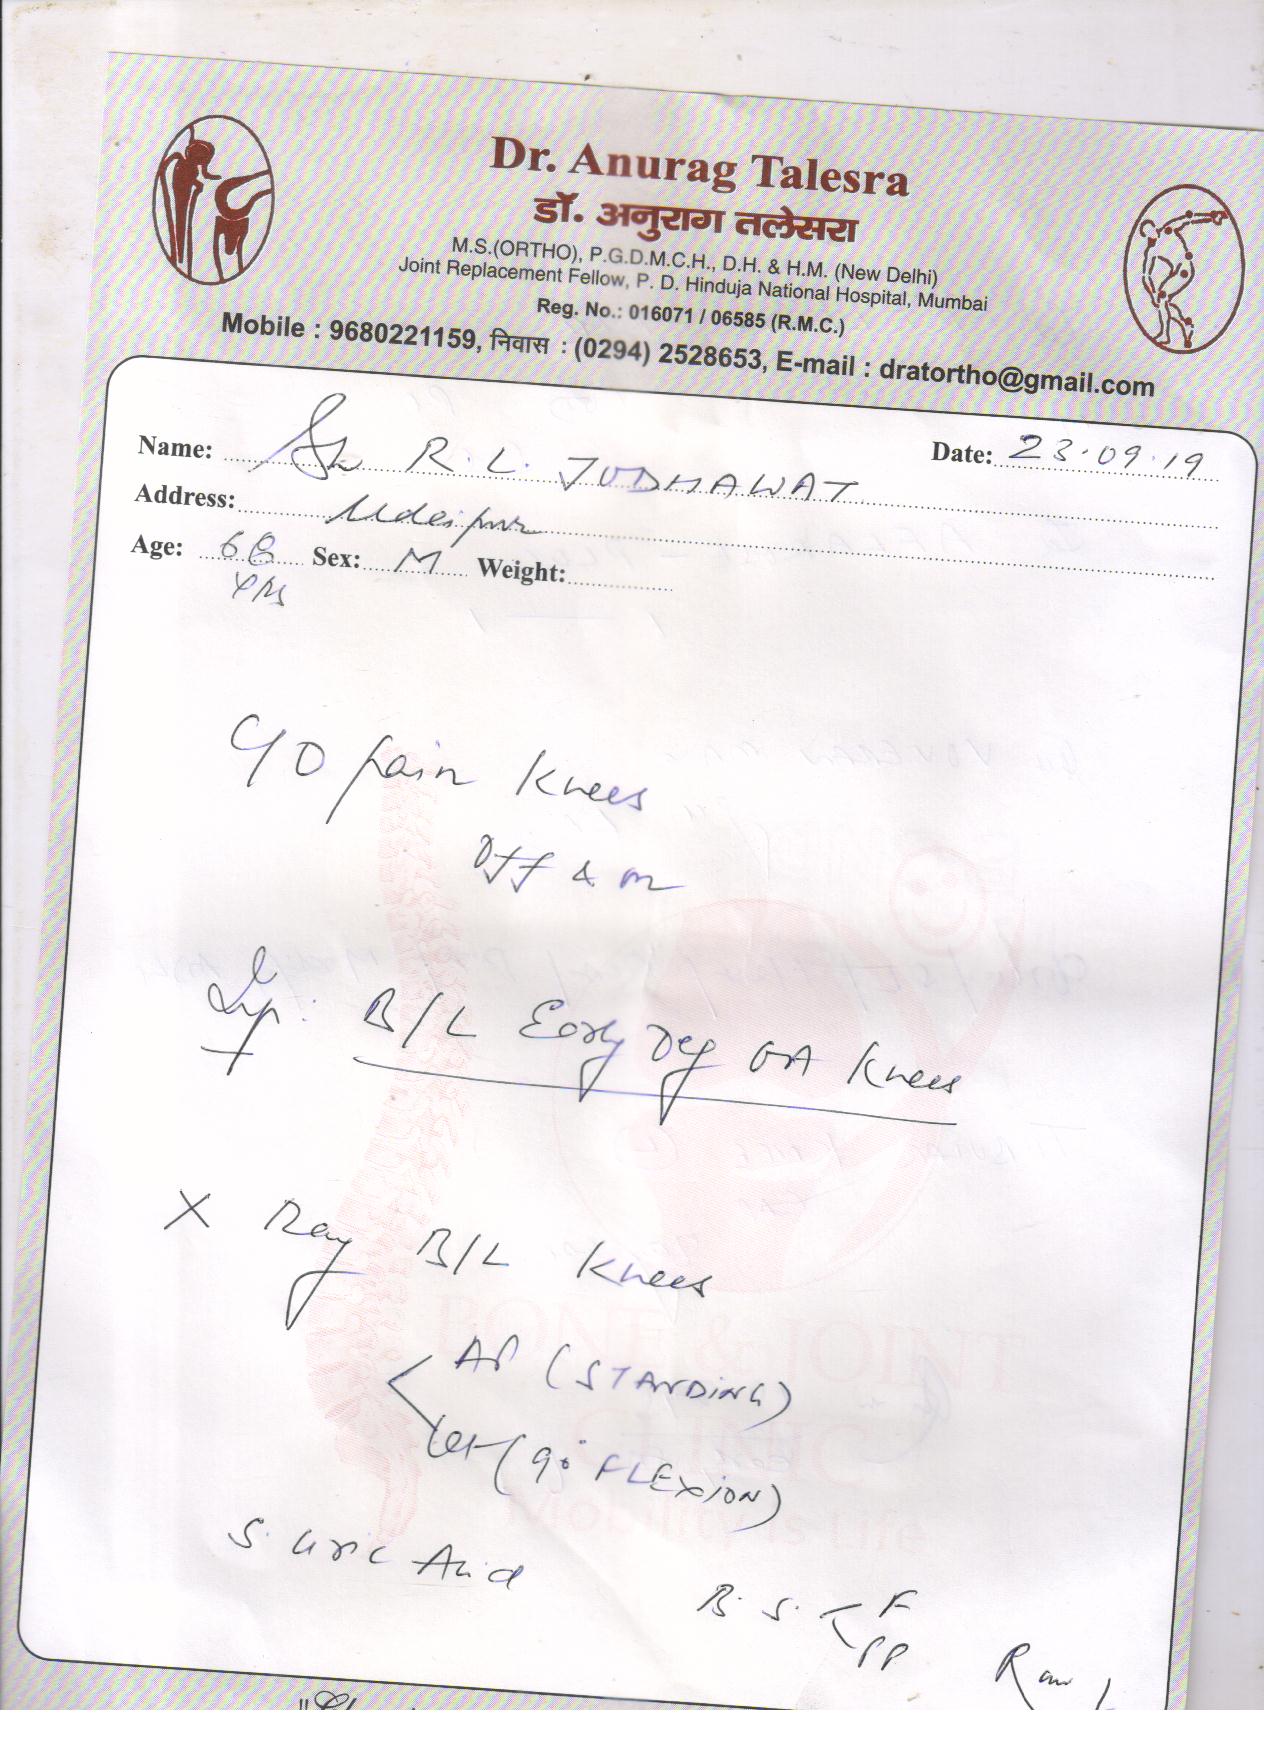 Dr. Anurag Talesra
डॉ. अनुराग तलेसरा
M.S.(ORTHO), P.G.D.M.C.H., D.H. & H.M. (New Delhi)
Joint Replacement Fellow, P. D. Hinduja National Hospital, Mumbai
Reg. No.: 016071 / 06585 (R.M.C.)
Mobile : 9680221159, निवास : (0294) 2528653, E-mail : dratortho@gmail.com
Name: Sh R. L. JODHAWAT Date: 23.09.19
Address: Udaipur
Age: 68 Sex: M Weight:
yrs
C/O pain knees
Off & on
Imp: B/L Early Deg OA Knees
X Ray B/L Knees
AP (STANDING)
Lat (90° FLEXION)
S. Uric Acid
B.S. F
PP
BONE & JOINT
CLINIC
Mobility is Life